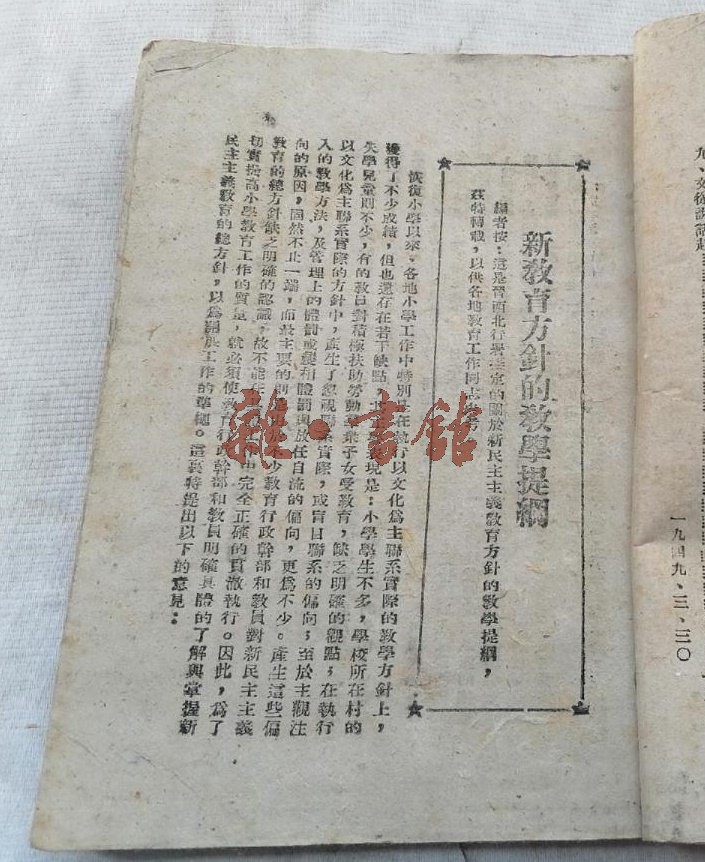 新教育方針的教學提綱
編者按：這是晉西北行署擬定的關於新民主主義教育方針的教學提綱，
茲特轉載，以供各地教育工作同志參考
恢復小學以來，各地小學工作中特別是在執行以文化爲主聯系實際的教學方針上，
獲得了不少成績，但也還存在着若干缺點，其主要表現是：小學學生不多，學校所在村的
失學兒童則不少，有的教員對積極扶助勞動羣衆子女受教育，缺乏明確的觀點；在執行
以文化爲主聯系實際的方針中，產生了忽視聯系實際，或盲目聯系的偏向；至於主觀注
入的教學方法，及管理上的體罰或變相體罰與放任自流的偏向，更爲不少。產生這些偏
向的原因，固然不止一端，而最主要的則是由於不少教育行政幹部和教員對新民主主義
教育的總方針缺乏明確的認識，故不能在工作中完全正確的貫澈執行。因此，爲了
切實提高小學教育工作的質量，就必須使教育行政幹部和教員明確具體的了解與掌握新
民主主義教育的總方針，以爲開展工作的準繩。這裏特提出以下的意見：
一九四九、三、三〇
雜·書館